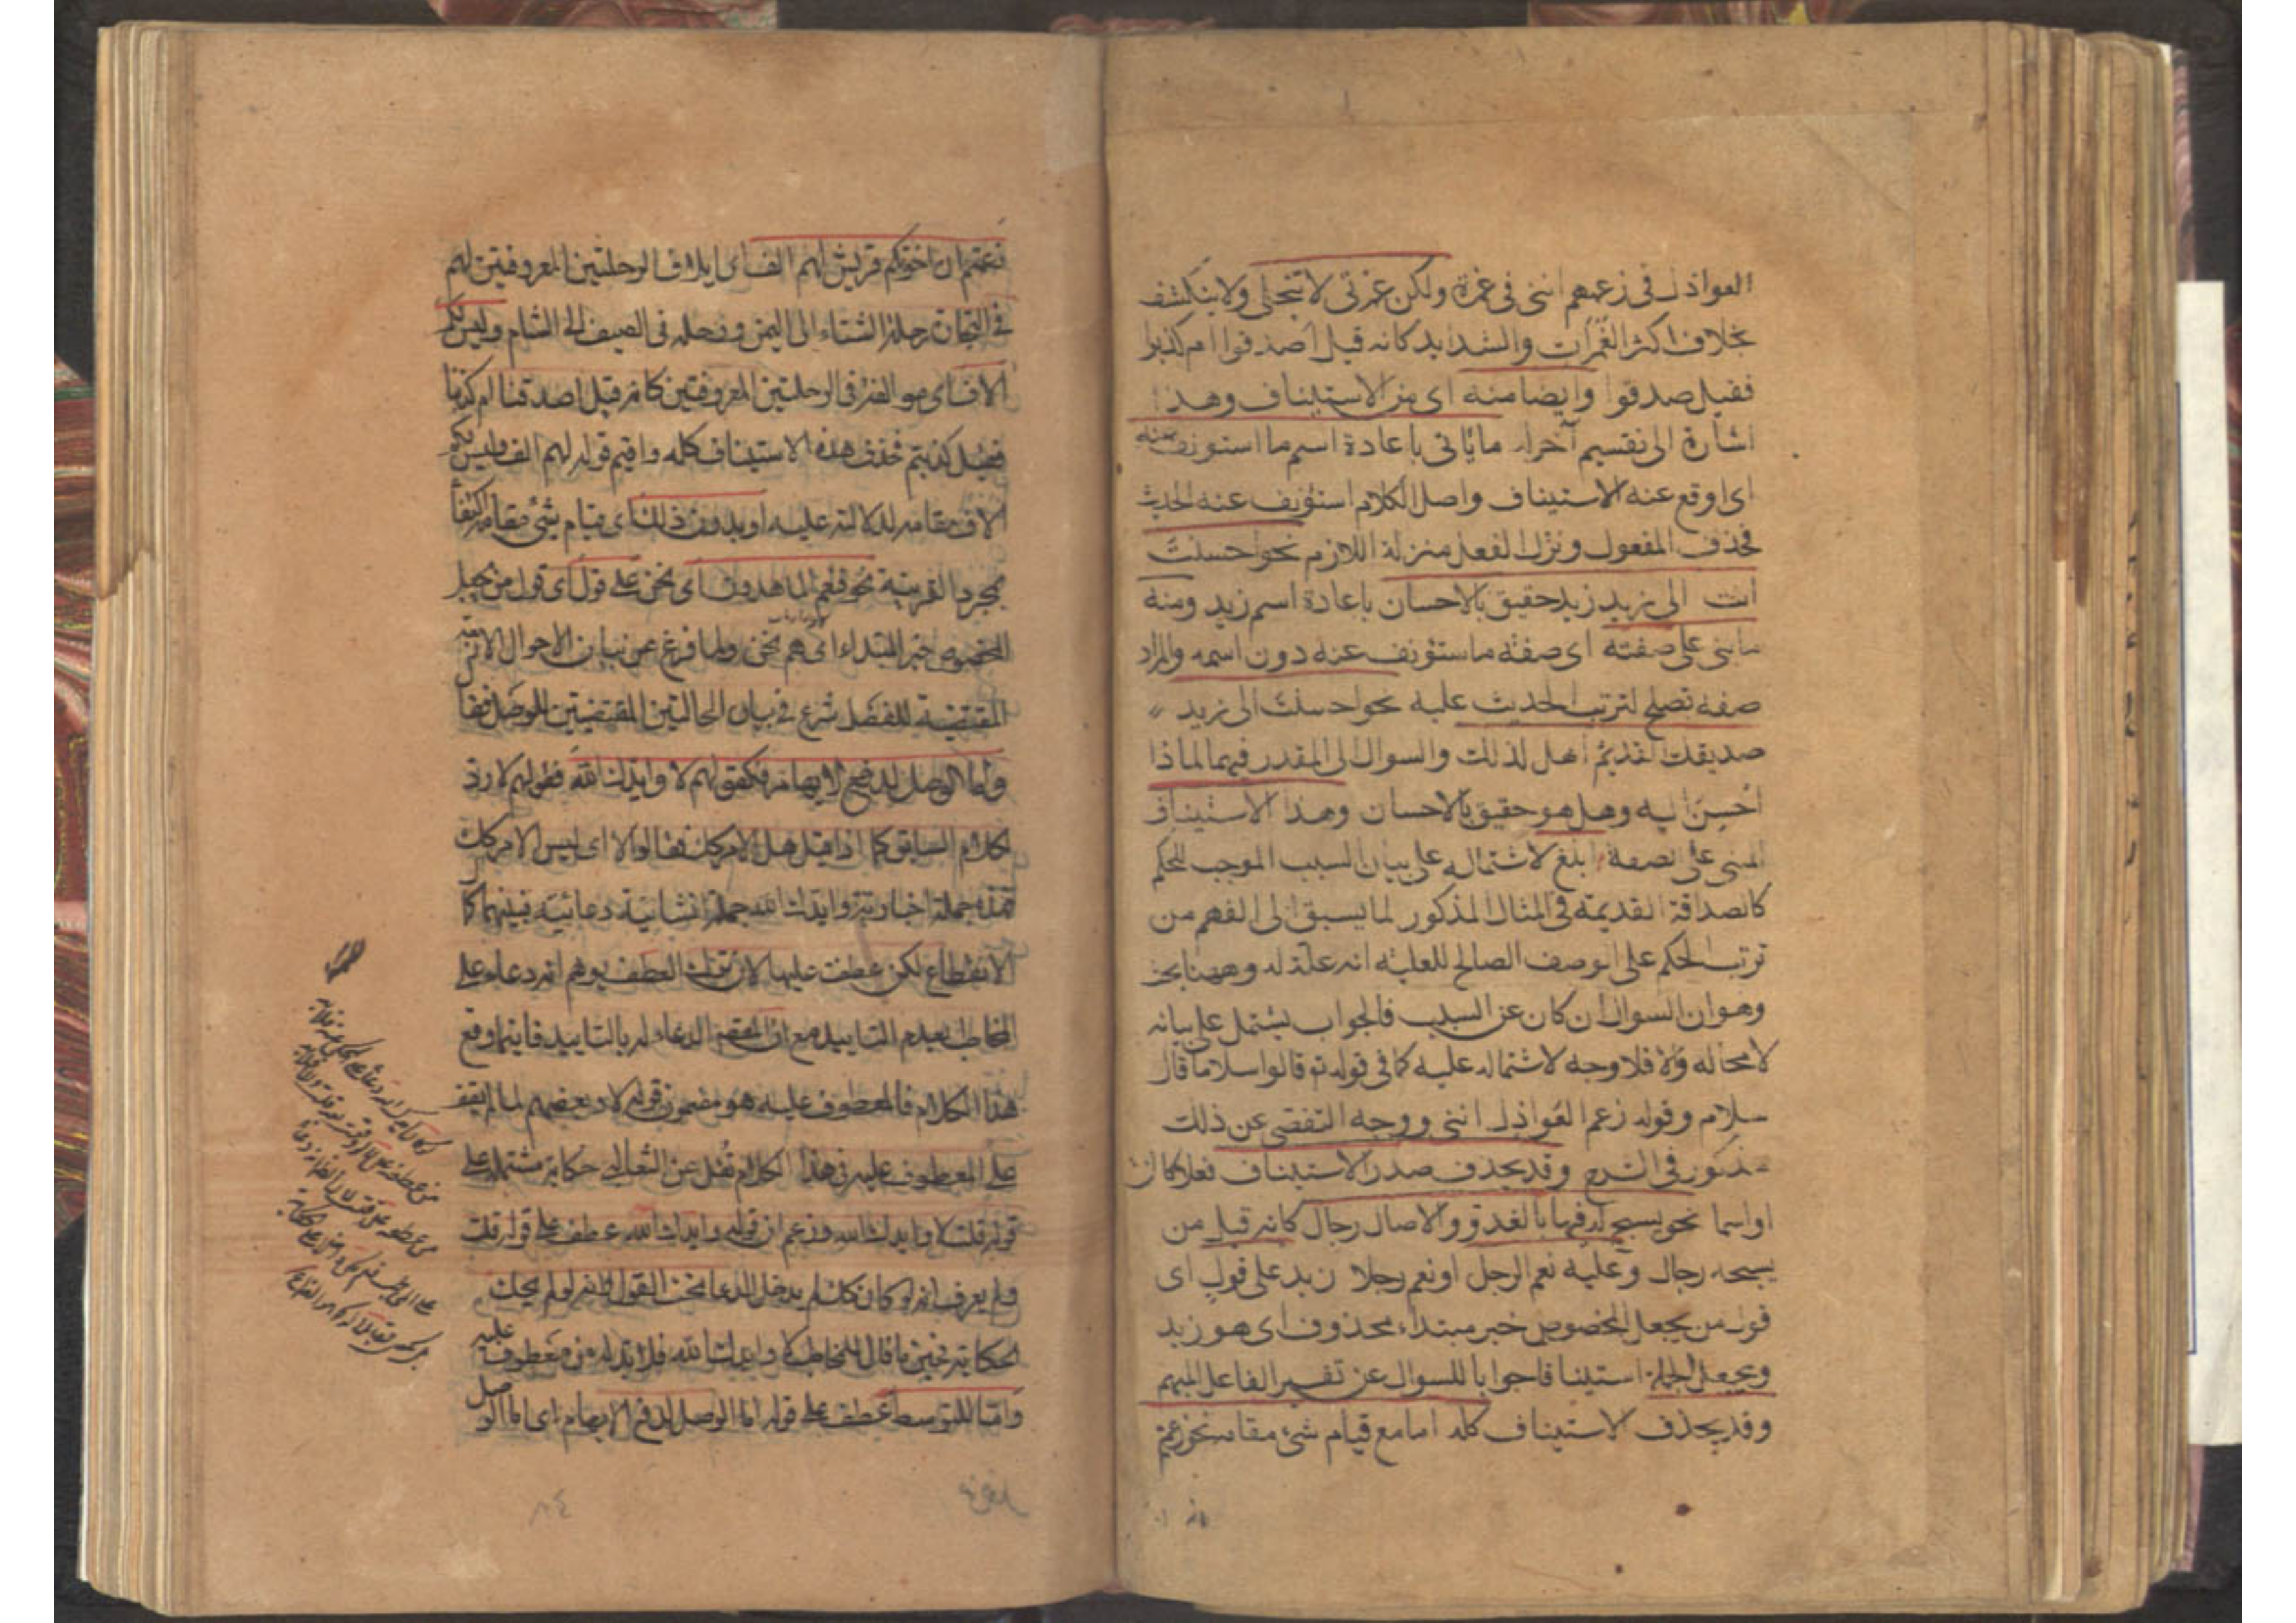 العواذل فى زعمهم اننى فى غمرة ولكن غمرتى لا تنجلى ولا ينكشف
بخلاف اكثر الغمرات والشدايد كانه قيل اصدقوا ام كذبوا
فقيل صدقوا وايضا منه اى من الاستيناف وهذا
اشارة الى تقسيم آخر له ما يأتى باعادة اسم ما استونف عنه
اى اوقع عنه الاستيناف واصل الكلام استؤنف عنه الحديث
فحذف المفعول ونزل الفعل منزلة اللازم نحو احسنت
انت الى زيد زيد حقيق بالاحسان باعادة اسم زيد ومنه
ما يبنى على صفته اى صفة ما ستؤنف عنه دون اسمه والمراد
صفة تصلح لترتب الحديث عليه نحو احسنت الى زيد
صديقك القديم اهل لذلك والسوال المقدر فيهما لماذا
احسن اليه وهل هو حقيق بالاحسان وهذا الاستيناف
المبنى على الصفة ابلغ لاشتماله على بيان السبب الموجب للحكم
كالصداقة القديمة فى المثال المذكور لما يسبق الى الفهم من
ترتب الحكم على الوصف الصالح للعلية انه علة له وههنا بحث
وهو ان السوال ان كان عن السبب فالجواب يشتمل على بيانه
لا محاله والا فلا وجه لاشتماله عليه كما فى قوله تع قالوا سلاما قال
سلام وقوله زعم العواذل اننى ووجه التفصى عن ذلك
مذكور فى الشرح وقد يحذف صدر الاستيناف فعلا كان
او اسما نحو يسبح له فيها بالغدو والاصال رجال كانه قيل من
يسبحه رجال وعليه نعم الرجل او نعم رجلا زيد على قول اى
قول من يجعل المخصوص خبر مبتداء محذوف اى هو زيد
ويجعل الجملة استينافا جوابا للسوال عن تفسير الفاعل المبهم
وقد يحذف الاستيناف كله اما مع قيام شئ مقامه نحو زعم
زعمتم ان اخوتكم قريش لهم الف اى ايلاف الرحلتين المعروفتين لهم
فى التجارة رحلة الشتاء الى اليمن ورحله فى الصيف الى الشام وليس لكم
الاف اى موالفة فى الرحلتين المعروفتين كانه قيل اصدقنا ام كذبنا
فقيل كذبتم فحذف هذه الاستيناف كله واقيم قوله لهم الف وليس لكم
الاف مقامه لدلالته عليه او بدون ذلك اى قيام شئ مقامه اكتفأ
بمجرد القرينة نحو فنعم الماهدون اى نحن على قول اى قول من يجعل
المخصوص خبر المبتداء اى هم نحن ولما فرغ من بيان الاحوال الاربعة
المقتضية للفصل شرع فى بيان الحالتين المقتضيتين للوصل فقا
واما الوصل لدفع الايهام فكقولهم لا وايدك الله فقولهم لا رد
لكلام السابق كما اذا قيل هل الامر كك فقالوا لا اى ليس الامر كك
فهذه جملة اخبارية وايدك الله جملة انشائية دعائية فبينهما كما
الانقطاع لكن عطفت عليها لان ترك العطف يوهم انه دعاء على
المخاطب بعدم التاييد مع ان المقصود الدعاء له بالتاييد فاينما وقع
هذا الكلام فالمعطوف عليه هو مضمون قوله لا وبعضهم لما لم يقف
على المعطوف عليه فى هذا الكلام نقل عن الثعالبى حكاية مشتملة على
قوله قلت لا وايدك الله وزعم ان قوله وايدك الله عطف على قوله قلت
ولم يعرف انه لو كان كك لم يدخل الدعا تحت القول وانه لو لم يحك
الحكاية فحين ما قال للمخاطب لا وايدك الله فلا بد له من معطوف عليه
واما للتوسط عطف على قوله اما الوصل لدفع الايهام اى اما الوصل